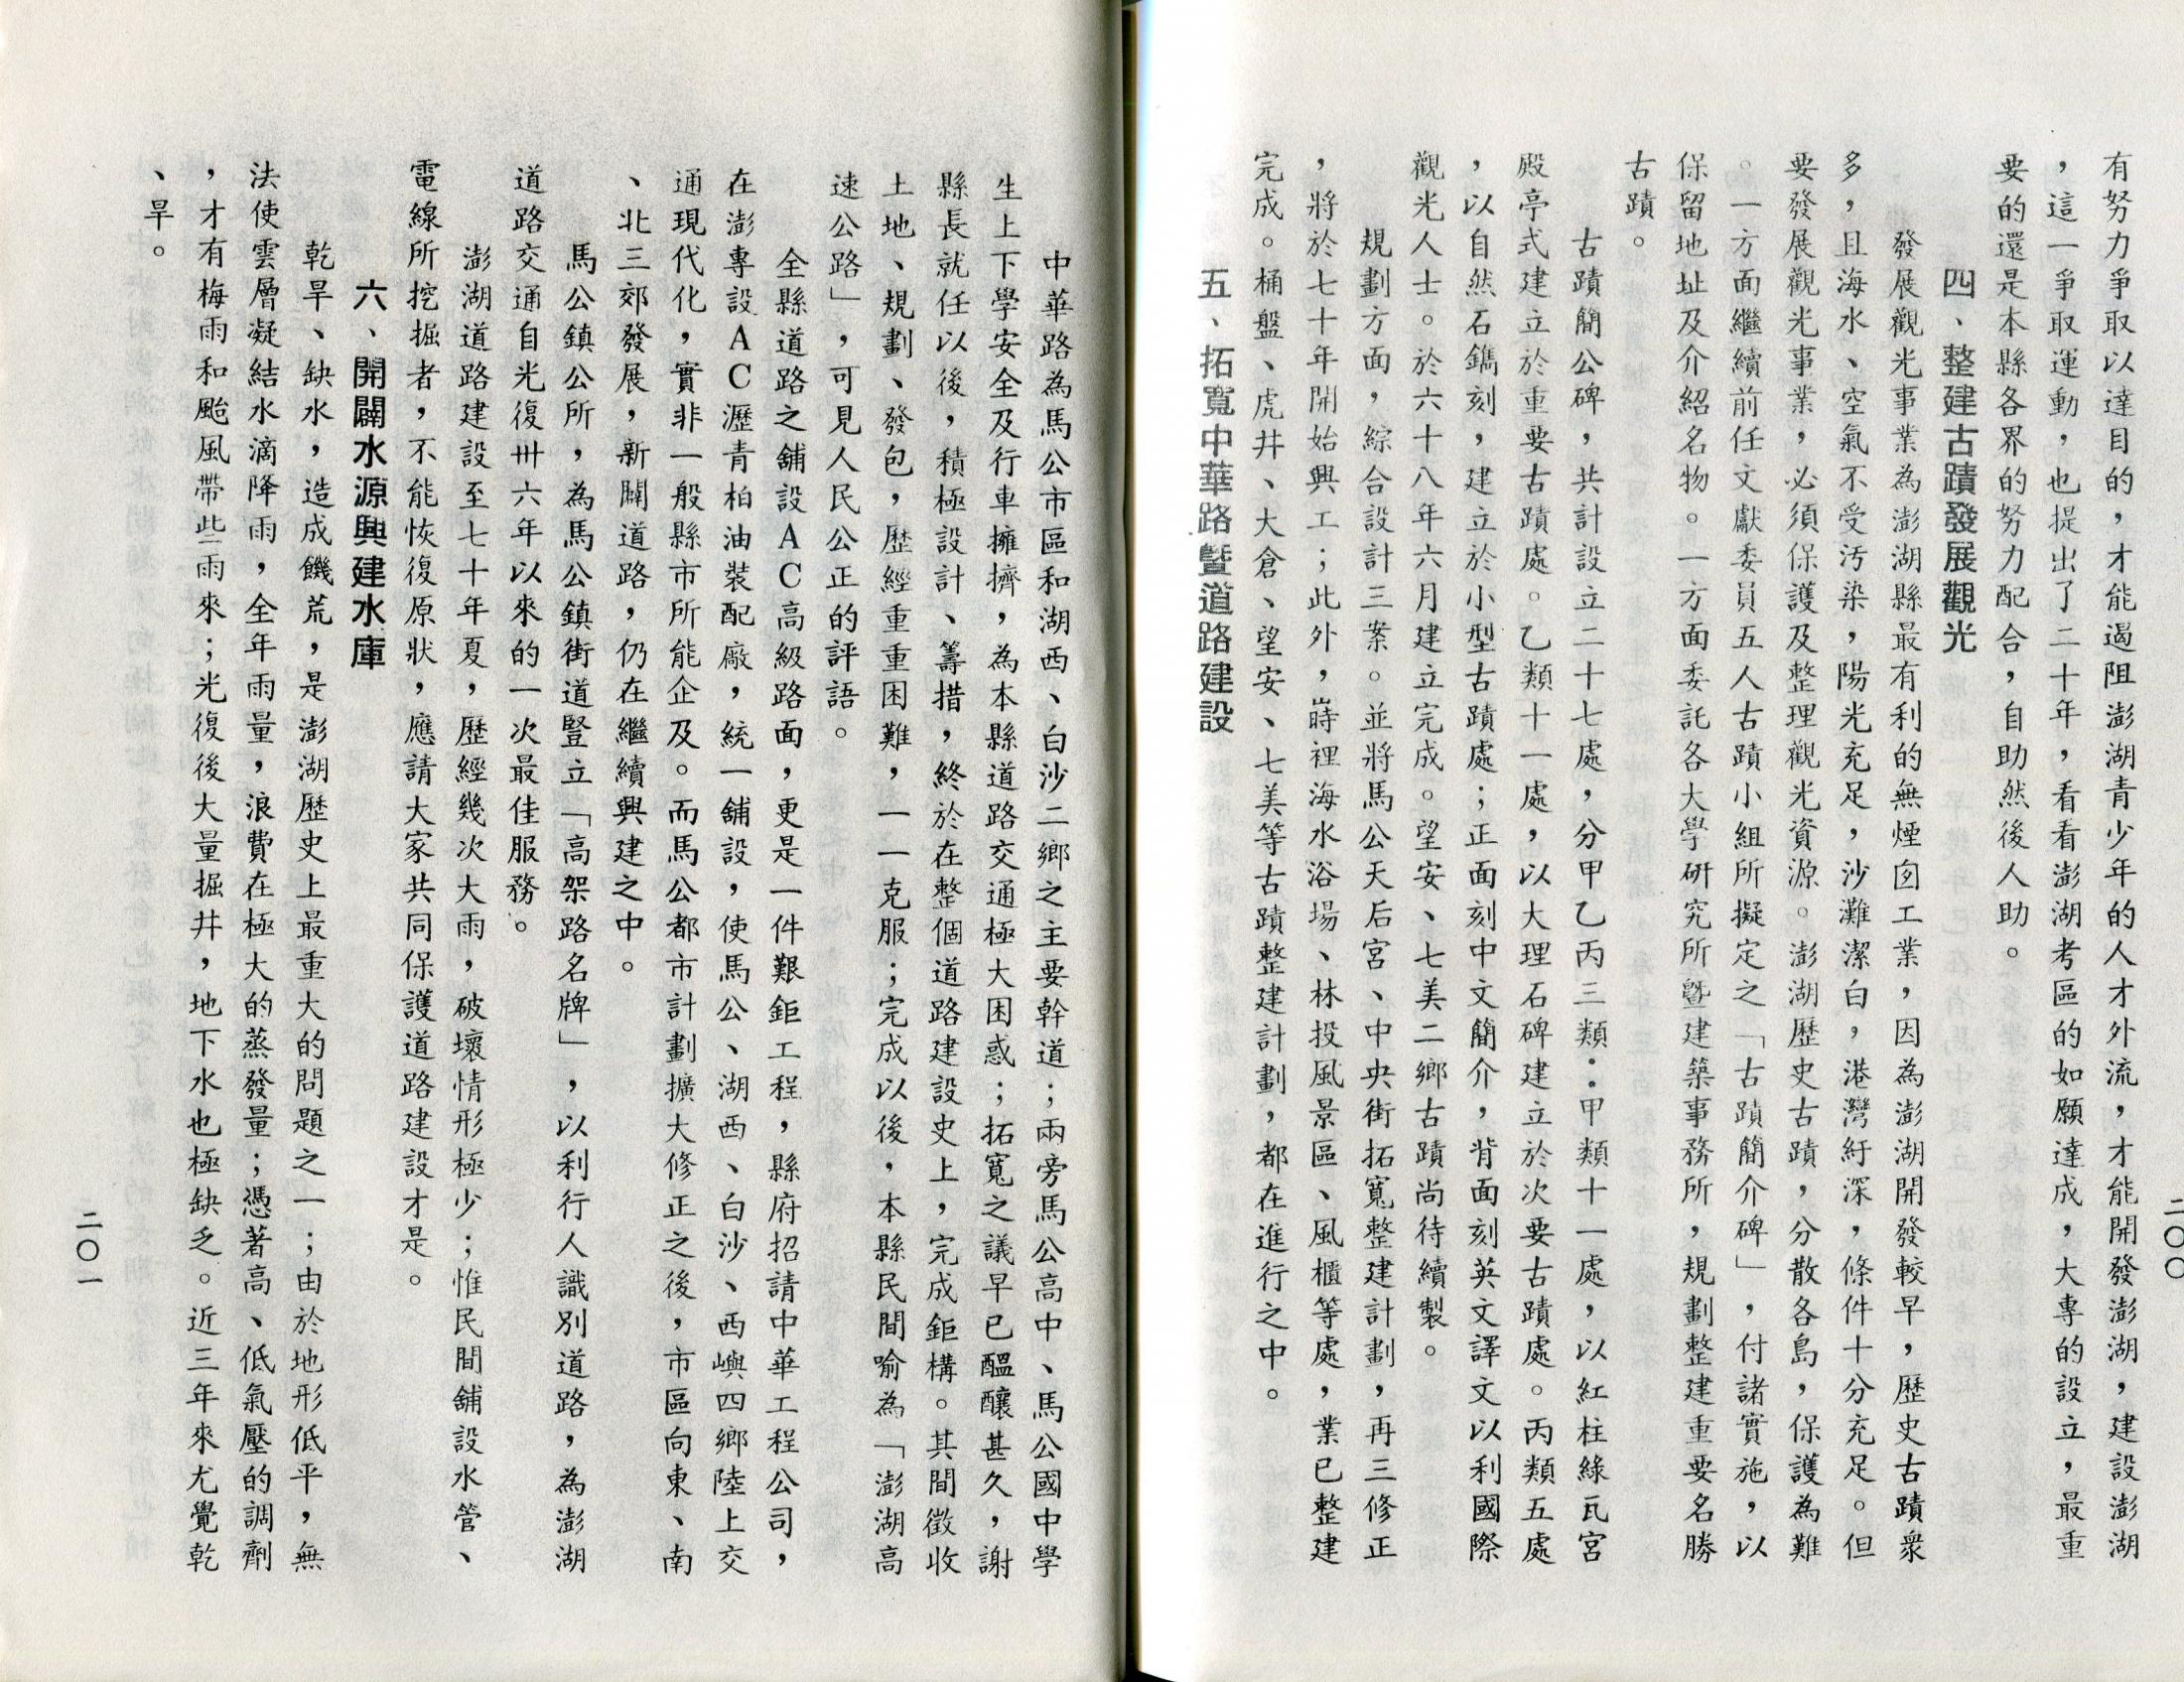 有努力爭取以達目的，才能遏阻澎湖青少年的人才外流，才能開發澎湖，建設澎湖
，這一爭取運動，也提出了二十年，看看澎湖考區的如願達成，大專的設立，最重
要的還是本縣各界的努力配合，自助然後人助。
四、整建古蹟發展觀光
發展觀光事業為澎湖縣最有利的無煙囪工業，因為澎湖開發較早，歷史古蹟衆
多，且海水、空氣不受污染，陽光充足，沙灘潔白，港灣紆深，條件十分充足。但
要發展觀光事業，必須保護及整理觀光資源。澎湖歷史古蹟，分散各島，保護為難
。一方面繼續前任文獻委員五人古蹟小組所擬定之「古蹟簡介碑」，付諸實施，以
保留地址及介紹名物。一方面委託各大學研究所暨建築事務所，規劃整建重要名勝
古蹟。
古蹟簡公碑，共計設立二十七處，分甲乙丙三類：甲類十一處，以紅柱綠瓦宮
殿亭式建立於重要古蹟處。乙類十一處，以大理石碑建立於次要古蹟處。丙類五處
，以自然石鐫刻，建立於小型古蹟處；正面刻中文簡介，背面刻英文譯文以利國際
觀光人士。於六十八年六月建立完成。望安、七美二鄉古蹟尚待續製。
規劃方面，綜合設計三案。並將馬公天后宮、中央街拓寬整建計劃，再三修正
，將於七十年開始興工；此外，蒔裡海水浴場、林投風景區、風櫃等處，業已整建
完成。桶盤、虎井、大倉、望安、七美等古蹟整建計劃，都在進行之中。
五、拓寬中華路暨道路建設
二〇〇
中華路為馬公市區和湖西、白沙二鄉之主要幹道；兩旁馬公高中、馬公國中學
生上下學安全及行車擁擠，為本縣道路交通極大困惑；拓寬之議早已醞釀甚久，謝
縣長就任以後，積極設計、籌措，終於在整個道路建設史上，完成鉅構。其間徵收
土地、規劃、發包，歷經重重困難，一一克服；完成以後，本縣民間喻為「澎湖高
速公路」，可見人民公正的評語。
全縣道路之舖設ＡＣ高級路面，更是一件艱鉅工程，縣府招請中華工程公司，
在澎專設ＡＣ瀝青柏油裝配廠，統一舖設，使馬公、湖西、白沙、西嶼四鄉陸上交
通現代化，實非一般縣市所能企及。而馬公都市計劃擴大修正之後，市區向東、南
、北三郊發展，新闢道路，仍在繼續興建之中。
馬公鎮公所，為馬公鎮街道豎立「高架路名牌」，以利行人識別道路，為澎湖
道路交通自光復卅六年以來的一次最佳服務。
澎湖道路建設至七十年夏，歷經幾次大雨，破壞情形極少；惟民間舖設水管、
電線所挖掘者，不能恢復原狀，應請大家共同保護道路建設才是。
六、開闢水源興建水庫
乾旱、缺水，造成饑荒，是澎湖歷史上最重大的問題之一；由於地形低平，無
法使雲層凝結水滴降雨，全年雨量，浪費在極大的蒸發量；憑著高、低氣壓的調劑
，才有梅雨和颱風帶些雨來；光復後大量掘井，地下水也極缺乏。近三年來尤覺乾
、旱。
二〇一